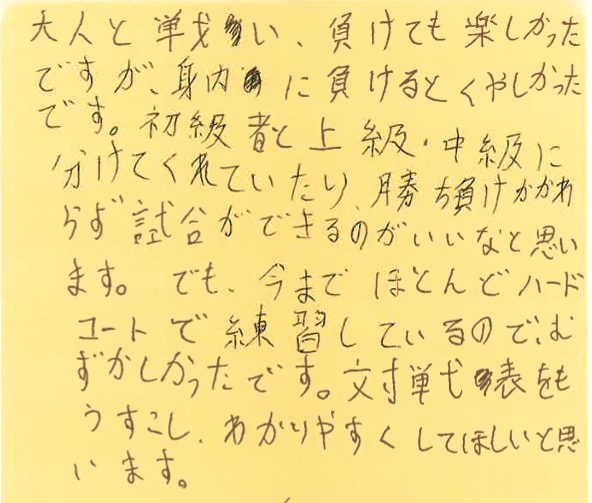 大人と戦い、負けても楽しかった
ですが、身内に負けるとくやしかった
です。初級者と上級・中級に
分けてくれていたり、勝ち負けかかわ
らず試合ができるのがいいなと思い
ます。でも、今までほとんどハード
コートで練習しているので、む
ずかしかったです。対戦表をも
うすこし、わかりやすくしてほしいと思
います。